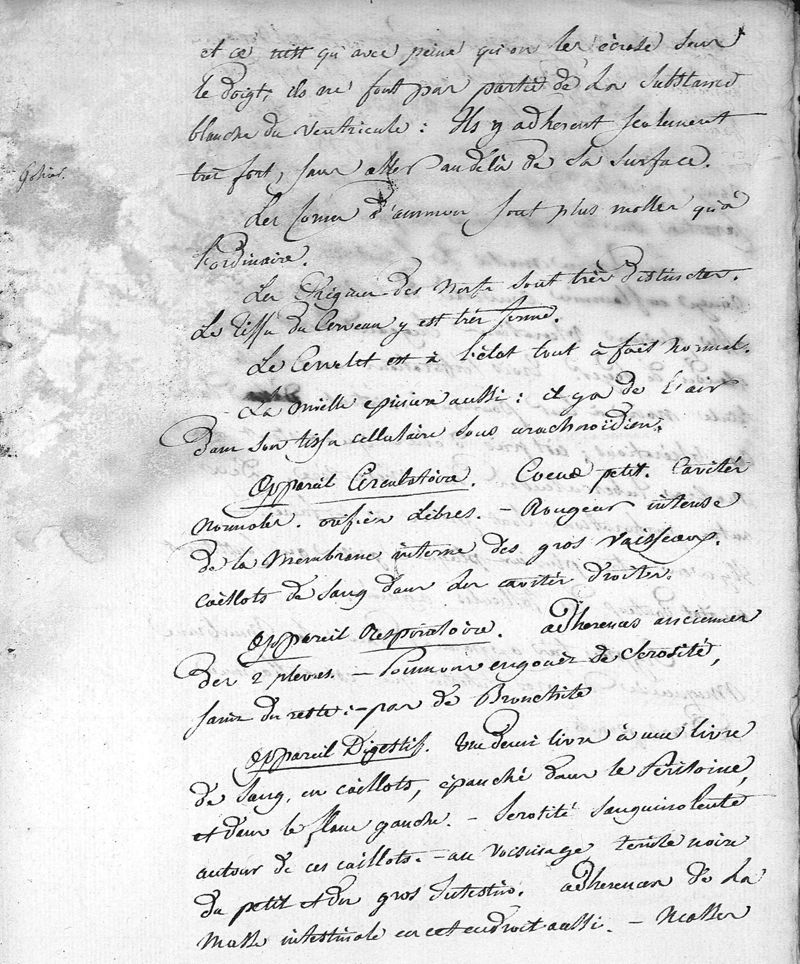 et ce n'est qu'avec peine qu'on les écrase sous
le doigt; ils ne font pas partie de la substance
blanche du ventricule : Ils y adherent seulement
très fort, sans aller au delà de sa surface.
Les Cornes d'ammon sont plus molles qu'à
l'ordinaire.
Les des Nerfs sont très distinctes.
Le tissu du Cerveau y est très ferme.
Le Cervelet est à l'état tout à fait normal.
La Moelle épiniere aussi : il y a de l'air
dans son tissu cellulaire sous arachnoïdien.
Appareil Circulatoire. Coeur petit. Cavités
normales. orifices Libres. – Rougeur intense
de la Membrane interne des gros Vaisseaux.
Caillots de sang dans les cavités droites.
Appareil Respiratoire. adherences anciennes
des 2 plèvres. – Poumons engoués de Serosité,
sains du reste : – pas de Bronchite
Appareil Digestif. Une demi livre à une livre
de Sang, en caillots, épanché dans le Péritoine,
et dans le flanc gauche. – Serosité Sanguinolente
autour de ces caillots. – au voisinage teinte noire
du petit et du gros Intestin. adherences de la
Masse intestinale en cet endroit aussi. –